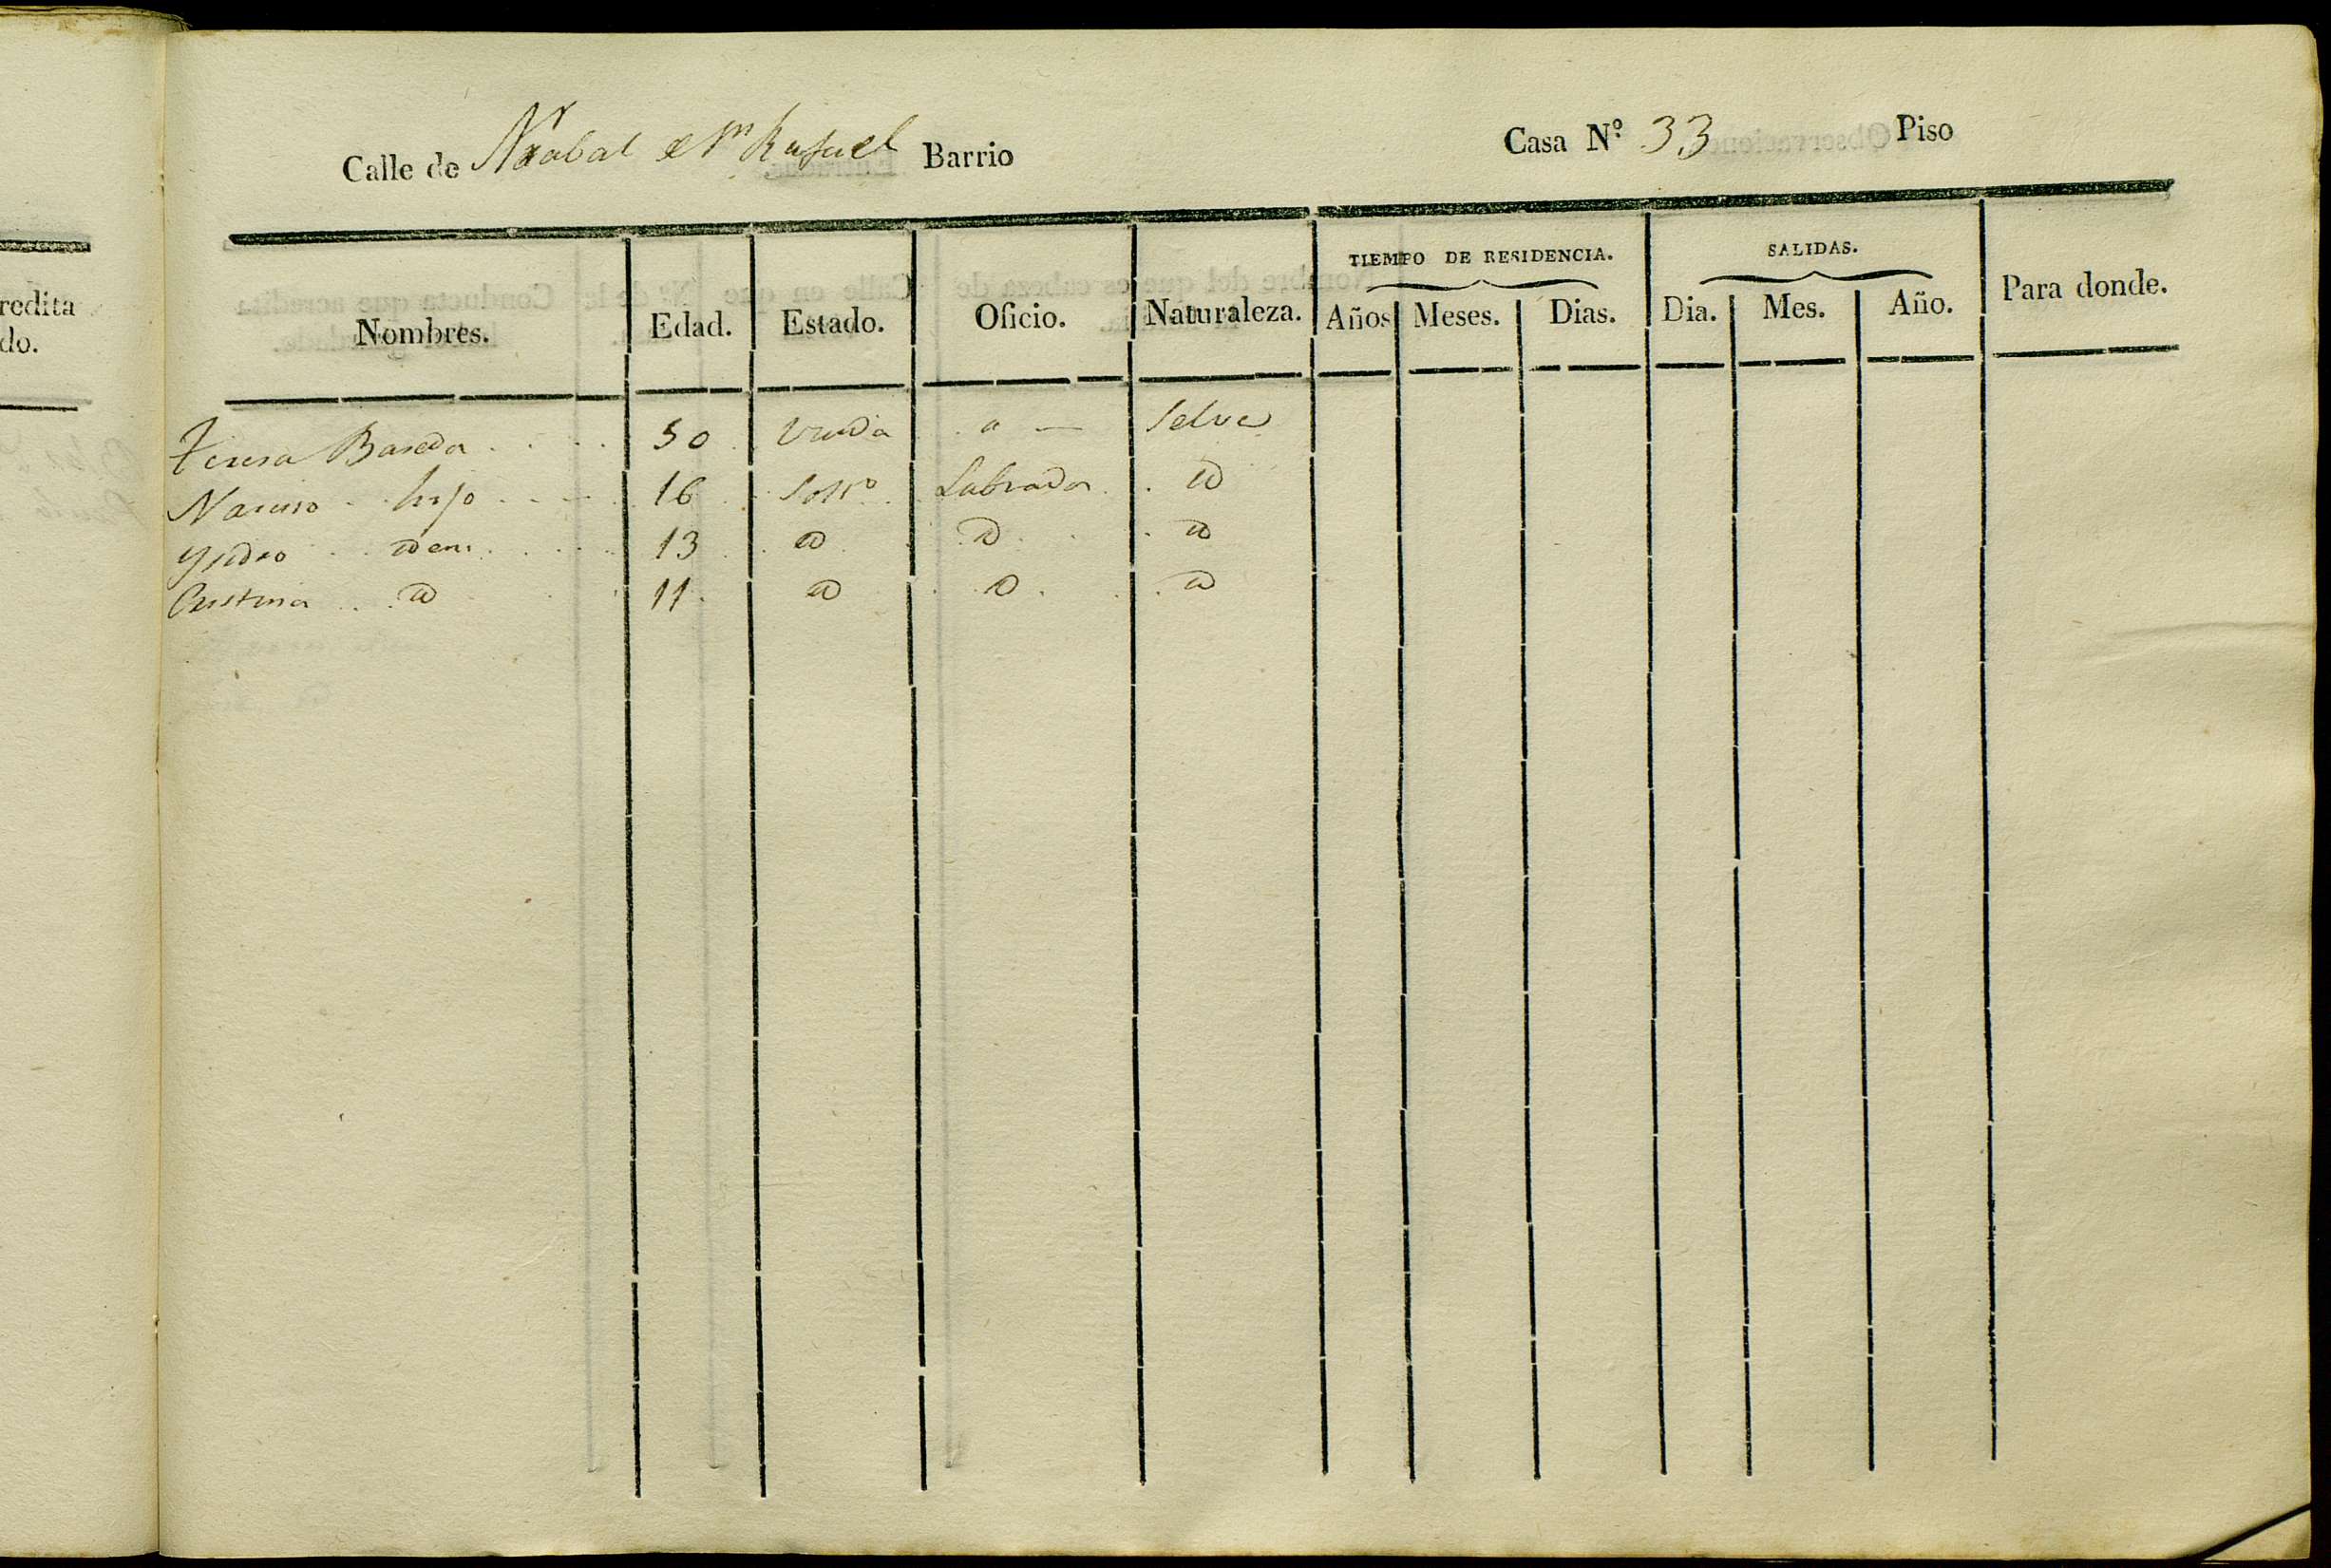 redita
do.
Calle de Arabal de Sn Rafael Barrio Casa Nº 33 Piso
TIEMPO DE RESIDENCIA. SALIDAS.
Nombres. Edad. Estado. Oficio. Naturaleza. Años Meses. Dias. Dia. Mes. Año. Para donde.
Teresa Baseda 50 Viuda " — Selva
Narciso hijo 16 Soltro Labrador id
Ysidro idem 13 id id id
Cristina id 11 id id id